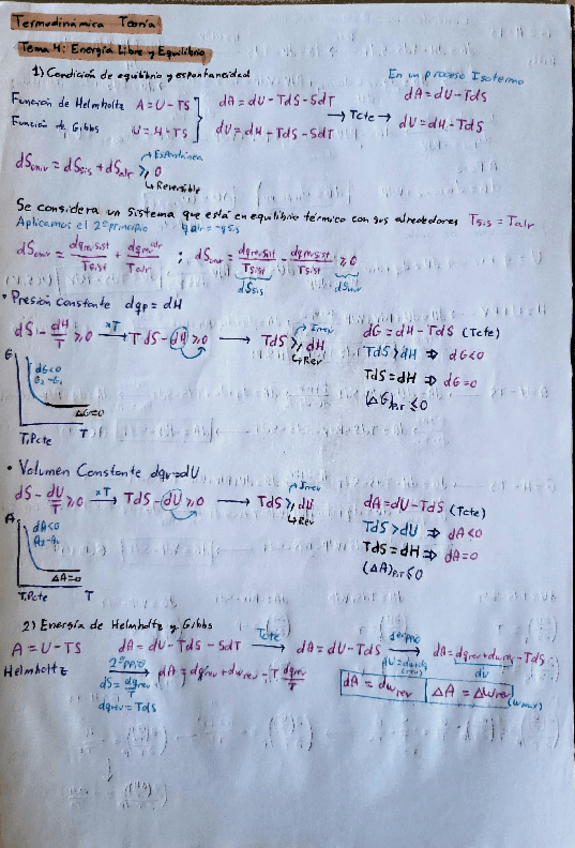 Termodinámica Teoría
Tema 4: Energía Libre y Equilibrio
1) Condición de equilibrio y espontaneidad
En un proceso Isotermo
Función de Helmholtz A = U - TS } dA = dU - TdS - SdT → Tcte → dA = dU - TdS
Función de Gibbs U = H - TS } dU = dH - TdS - SdT → Tcte → dU = dH - TdS
dSuniv = dSsis + dSalr ≥ 0 → Espontánea ↳ Reversible
Se considera un sistema que está en equilibrio térmico con sus alrededores Tsis = Talr
Aplicamos el 2º principio qalr = -qsis
dSuniv = dqrevsist/Tsist + dqrev alr/Talr ; dSunv = dqrevsist/Tsist - dqrevsist/Tsist ≥ 0
dSsis
• Presión Constante dqp = dH
dS - dH/T ≥ 0 xT→ TdS - dH ≥ 0 → TdS ≥ dH → Irrev ↳ Rev
dG = dH - TdS (Tcte)
TdS > dH ⇒ dG < 0
TdS = dH ⇒ dG = 0
(ΔG)P,T ≤ 0
G
dG<0
ΔG=0
T,Pcte T
• Volumen Constante dqv = dU
dS - dU/T ≥ 0 xT→ TdS - dU ≥ 0 → TdS ≥ dU → Irrev ↳ Rev
dA = dU - TdS (Tcte)
TdS > dU ⇒ dA < 0
TdS = dH ⇒ dA = 0
(ΔA)P,T ≤ 0
A
dA<0
ΔA=0
T,Pcte T
2) Energía de Helmholtz y Gibbs
A = U - TS dA = dU - TdS - SdT Tcte→ dA = dU - TdS 1erppio→ dA = dqrev + dwrev - TdS
dU
Helmholtz 2ºppio→ dA = dqrev + dwrev - T dqrev/T
dS = dqrev/T
dqrev = TdS
dA = dwrev ΔA = Δwrev